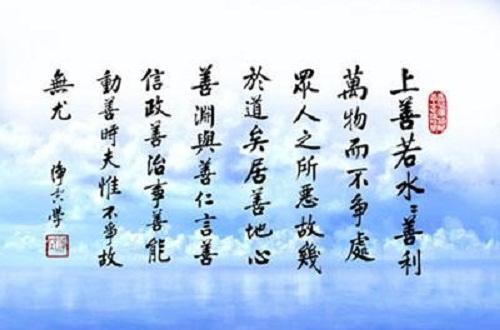 上善若水〻善利
萬物而不爭處
眾人之所惡故幾
於道矣居善地心
善淵與善仁言善
信政善治事善能
動善時夫惟不爭故
無尤
淨空學